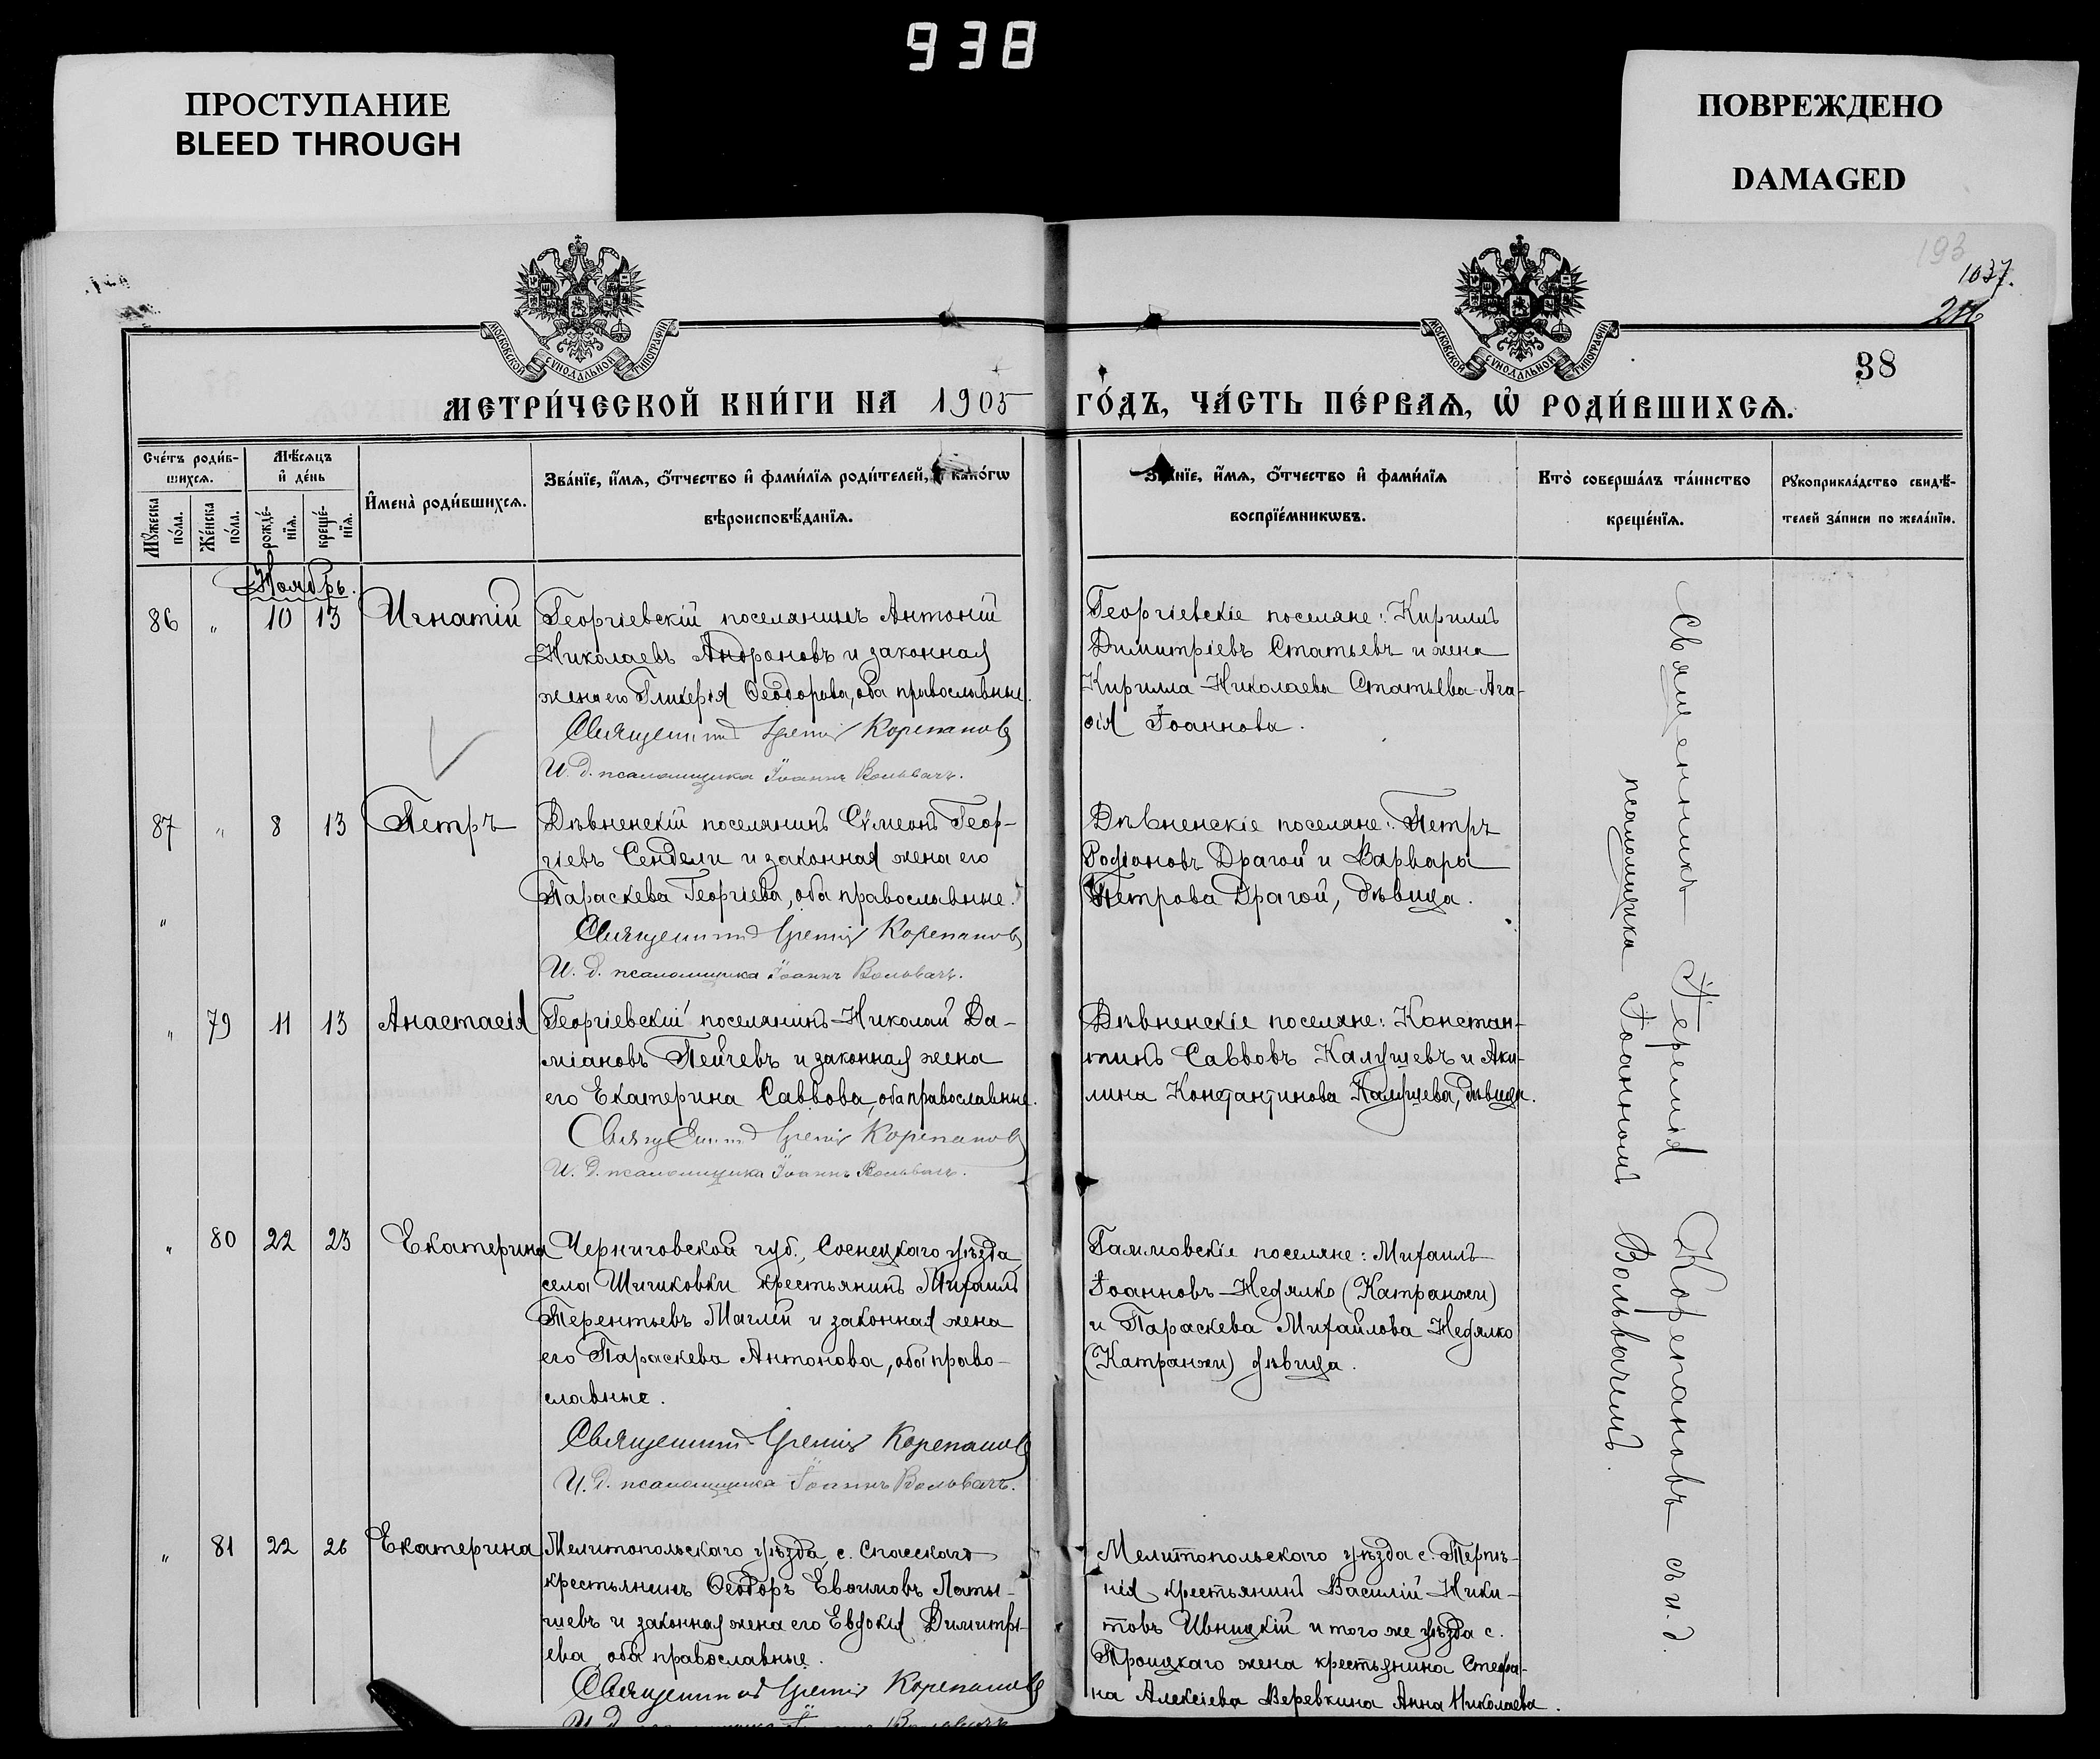 938
ПРОСТУПАНИЕ
BLEED THROUGH
ПОВРЕЖДЕНО
DAMAGED
193
1037.
МОСКОВСКОЙ СУНОДАЛЬНОЙ ТИПОГРАФІИ
МОСКОВСКОЙ СУНОДАЛЬНОЙ ТИПОГРАФІИ
38
МЕТРИ́ЧЕСКОЙ КНИ́ГИ НА 1905 ГО́ДЪ, ЧА́СТЬ ПЕ́РВАѦ, Ѿ РОДИ́ВШИХСѦ.
Сче́тъ роди́в-
шихсѧ.
Мꙋжеска по́ла.
Же́нска по́ла.
Мѣ́сѧцъ
и҆ де́нь
рожде́-
нїѧ.
креще́-
нїѧ.
И҆мена̀ роди́вшихсѧ.
Зва́нїе, и҆́мѧ, ѻ҆́тчество и҆ фами́лїѧ роди́телей, како́гѡ
вѣроисповѣ́данїѧ.
Зва́нїе, и҆́мѧ, ѻ҆́тчество и҆ фами́лїѧ
воспрїе́мникѡвъ.
Кто̀ соверша́лъ та́инство
креще́нїѧ.
Рꙋкоприкла́дство свидѣ́-
телей за́писи по жела́нїю.
Ноябрь.
86 " 10 13 Игнатій
Георгіевскій поселянинъ Антоній
Николаевъ Андроновъ и законная
жена его Гликерія Ѳеодорова, оба православные.
Священникъ Іеремія Корепановъ
И. д. псаломщика Іоаннъ Вольвачъ.
Георгіевскіе поселяне: Кириллъ
Димитріевъ Статьевъ и жена
Кирилла Николаева Статьева Ага-
ѳія Іоаннова.
87 " 8 13 Петръ
Дѣвненскій поселянинъ Сѵмеонъ Геор-
гіевъ Сендели и законная жена его
Параскева Георгіева, оба православные.
Священникъ Іеремія Корепановъ
И. д. псаломщика Іоаннъ Вольвачъ.
Дѣвненскіе поселяне: Петръ
Родіоновъ Драгой и Варвара
Петрова Драгой, дѣвица.
" 79 11 13 Анастасія
Георгіевскій поселянинъ Николай Да-
міановъ Пейчевъ и законная жена
его Екатерина Саввова, оба православные.
Священникъ Іеремія Корепановъ
И. д. псаломщика Іоаннъ Вольвачъ.
Дѣвненскіе поселяне: Констан-
тинъ Саввовъ Калущевъ и Аки-
лина Константинова Калущева, дѣвица.
" 80 22 23 Екатерина
Черниговской губ., Сосницкаго уѣзда
села Шишковки крестьянинъ Михаилъ
Терентьевъ Маглей и законная жена
его Параскева Антонова, оба право-
славные.
Священникъ Іеремія Корепановъ
И. д. псаломщика Іоаннъ Вольвачъ.
поселяне: Михаилъ
Іоанновъ Недялко (Катранжи)
и Параскева Михайлова Недялко
(Катранжи) дѣвица.
" 81 22 26 Екатерина
Мелитопольскаго уѣзда, с. Спасскаго
крестьянинъ Ѳеодоръ Евѳимовъ Латы-
шевъ и законная жена его Евдокія Димитрі-
ева, оба православные.
Священникъ Іеремія Корепановъ
И. д. псаломщика Іоаннъ Вольвачъ
Мелитопольскаго уѣзда с. Терпѣ-
нія крестьянинъ Василій Ники-
товъ Ивницкій и того же уѣзда с.
Троицкаго жена крестьянина Стефа-
на Алексіева Веревкина Анна Николаева.
Священникъ Іеремія Корепановъ съ и. д.
псаломщика Іоанномъ Вольвачемъ.